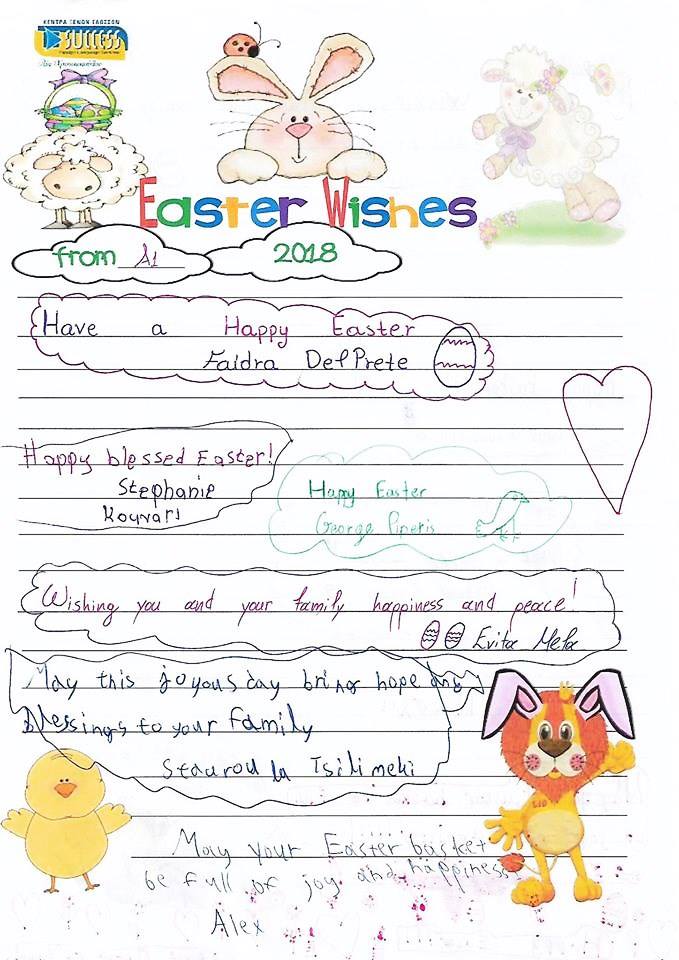 ΚΕΝΤΡΑ ΞΕΝΩΝ ΓΛΩΣΣΩΝ
SUCCESS
Easter Wishes
from A1
2018
Have a Happy Easter
Faidra DelPrete
Happy blessed Easter!
Stephanie
Kouvari
Happy Easter
George Piperis
Wishing you and your family happiness and peace!
Evita Mela
May this joyous day bring hope and
blessings to your family
Staurou la Tsilimeki
May your Easter basket
be full of joy and happiness
Alex